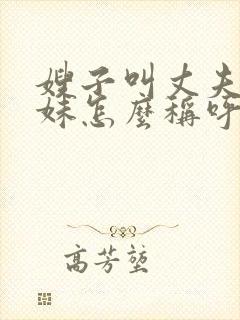 嫂子叫丈夫
妹怎麼稱呼
高芳堃